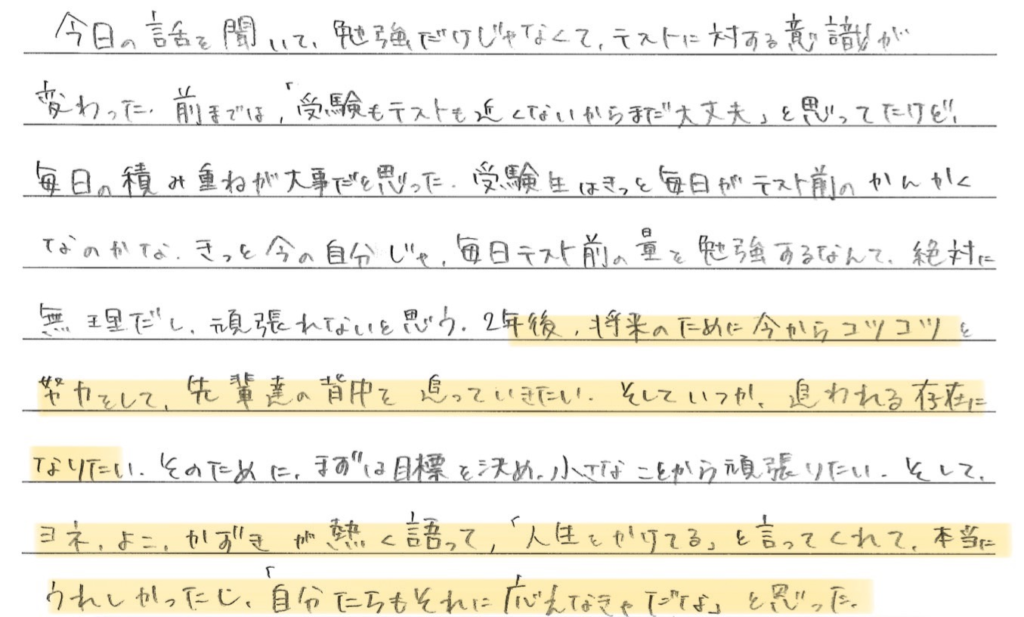 今日の話を聞いて、勉強だけじゃなくて、テストに対する意識が
変わった。前までは、「受験もテストも近くないからまだ大丈夫」と思ってたけど、
毎日の積み重ねが大事だと思った。受験生はきっと毎日がテスト前のかんかく
なのかな。きっと今の自分じゃ、毎日テスト前の量を勉強するなんて、絶対に
無理だし、頑張れないと思う。2年後、将来のために今からコツコツと
努力をして、先輩達の背中を追っていきたい。そしていつか、追われる存在に
なりたい。そのために、まずは目標を決め、小さなことから頑張りたい。そして、
ヨネ、よこ、かずきが熱く語って、「人生をかけてる」と言ってくれて、本当に
うれしかったし、「自分たちもそれに応えなきゃだな」と思った。